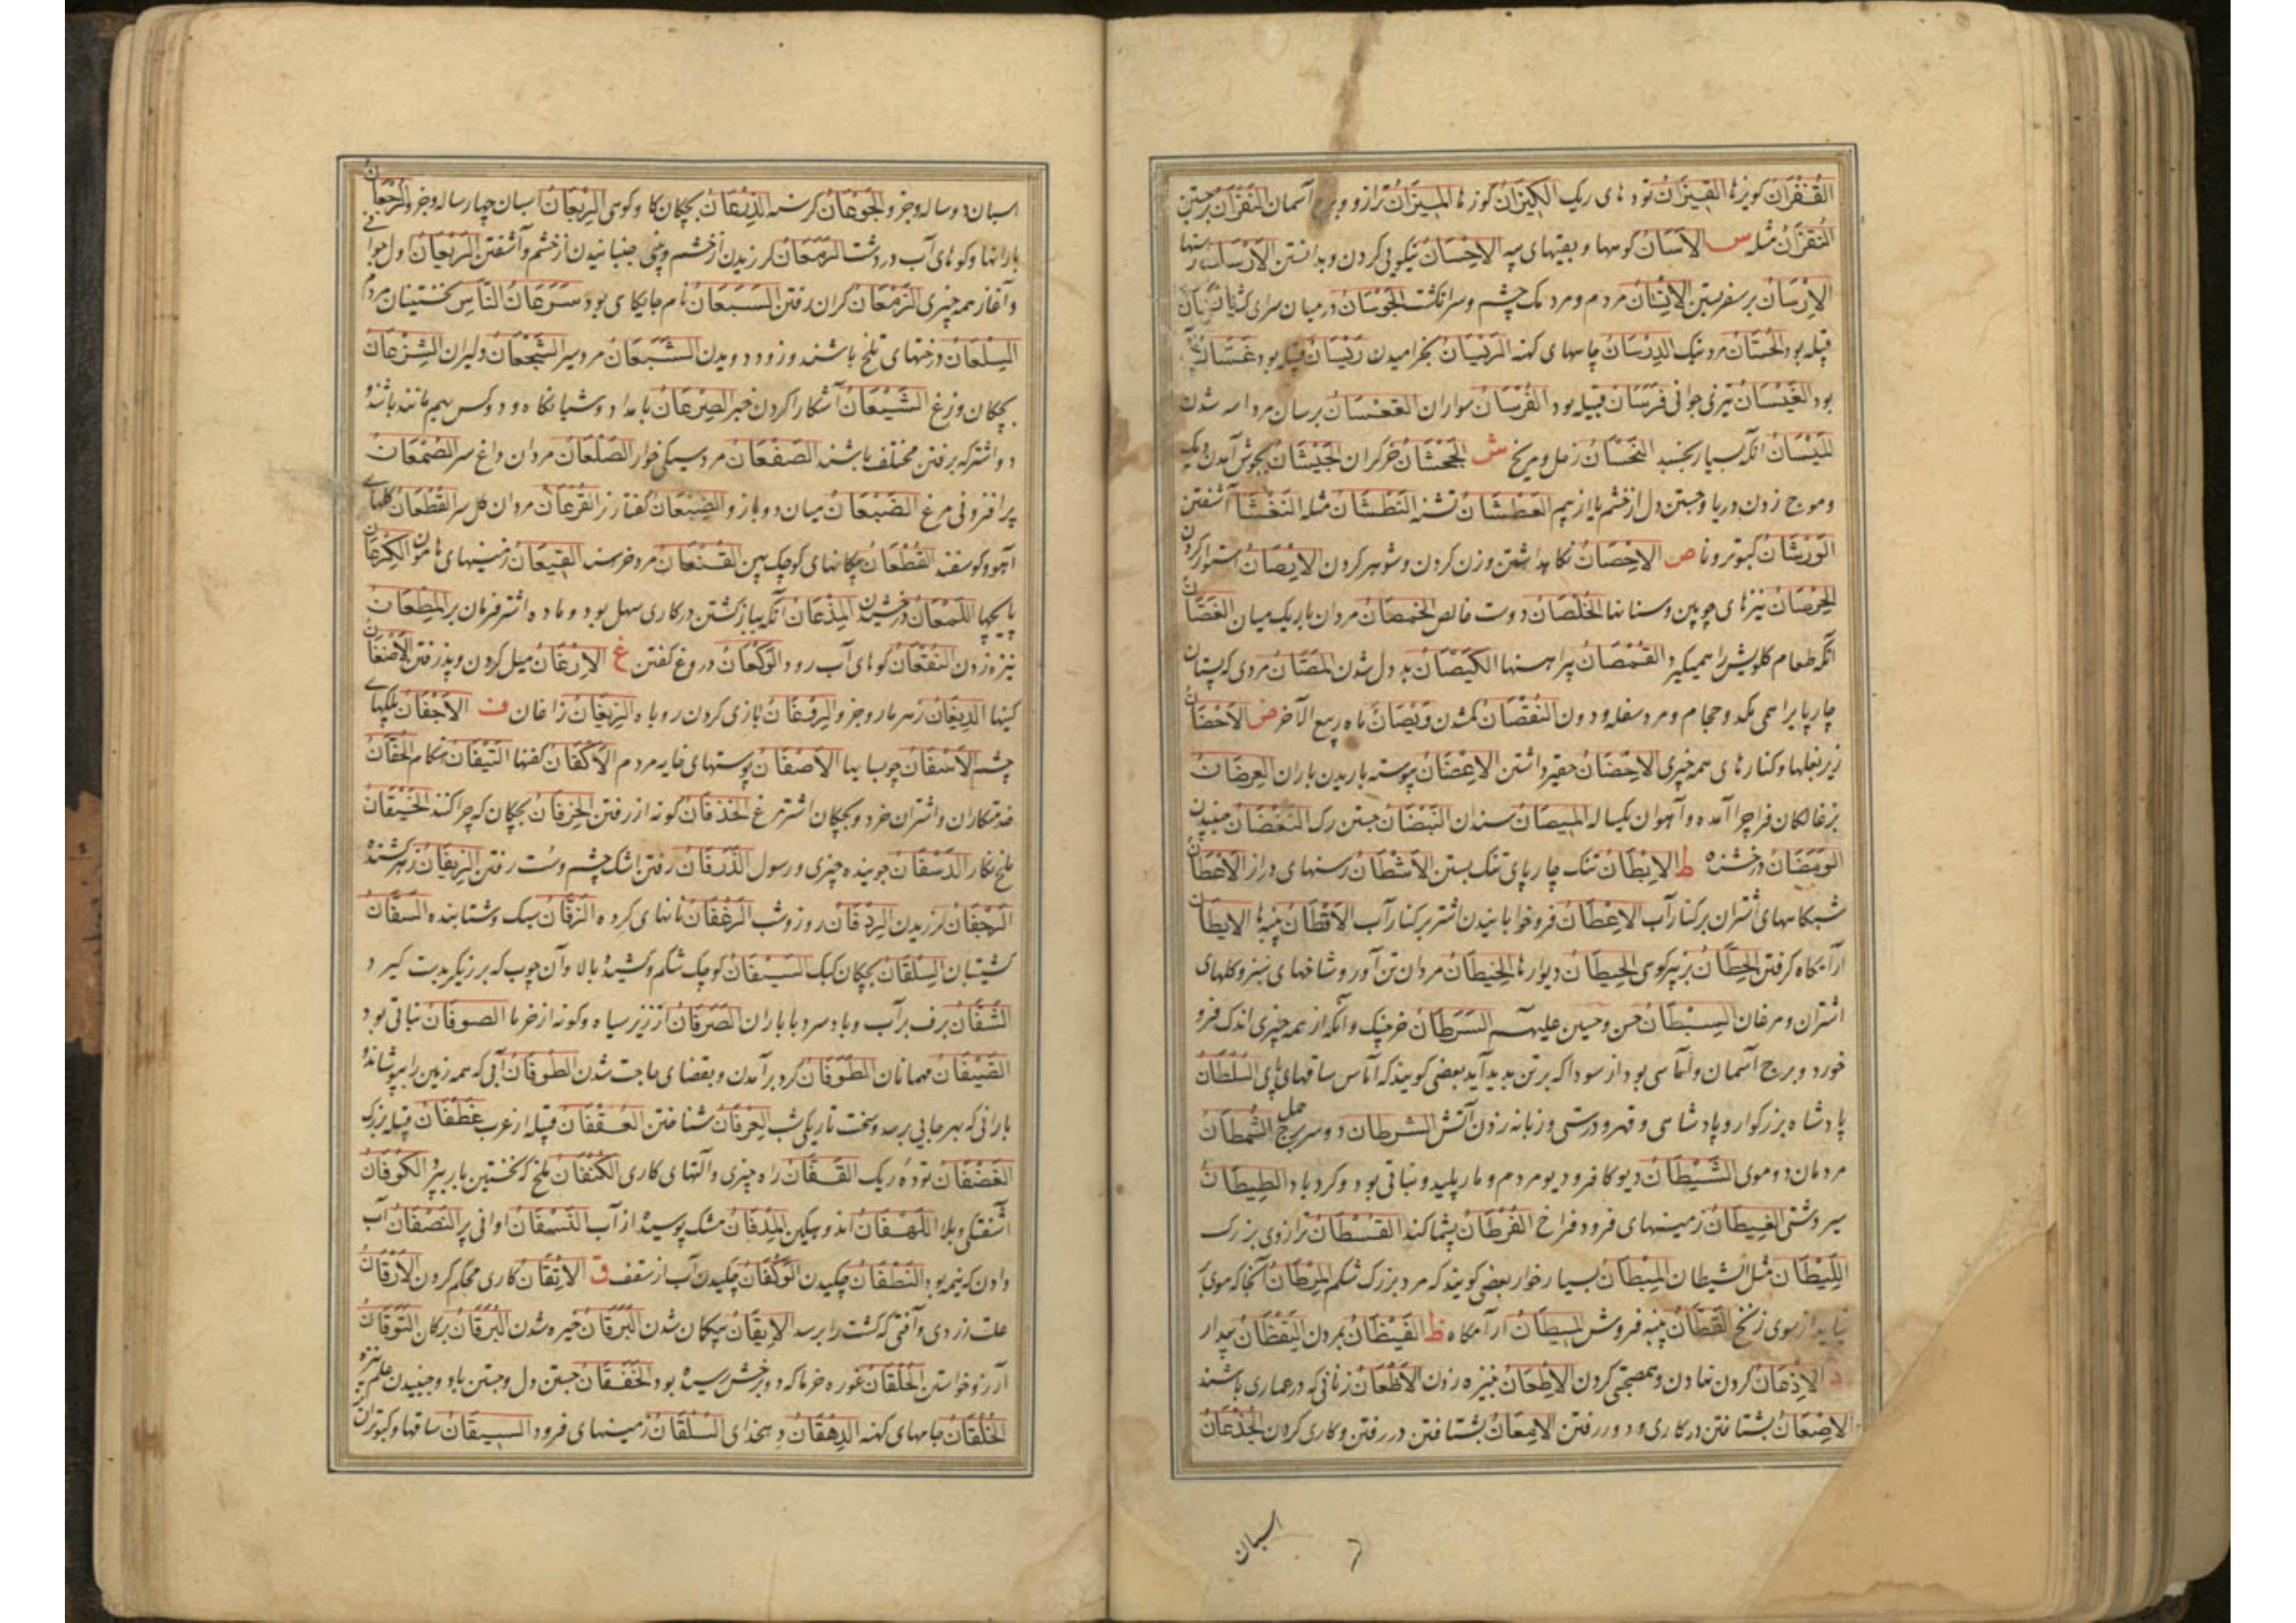 القفزان کویزها القیزان توده های ریک الکیزان کوزها المیزان ترازو و برج آسمان النقزان برجستن
النقزان مثله س الآسان کوسها و بقیتهای پیه الاحسان نیکویی کردن و بدانستن الارسان رسنها
الارسان برسفر بستن الانسان مردم و مردمک چشم و سر انکشت الجوسان در میان سرای کشتن
قبیله بود الحسان مرد نیک الدرسان جامهای کهنه الریسان بخرامیدن ریسان قبیله بود غسان
بود الغیسان تیزی جوانی فرسان قبیله بود الفرسان سواران القعسان برسان مرد اسه شدن
المیسان انکه بسیار بخسبد النحسان زحل و مریخ ش الجحشان خر کران الجیشان بجوش آمدن دیک
و موج زدن دریا و جستن دل از خشم یا از بیم العطشان تشنه النطشان مثله النغشان آشفتن
الورشان کبوتر ونا ص الاحصان نکاه داشتن و زن کردن و شوهر کردن الایصان استوار کردن
الخرصان نیزهای چوبین و سنانها الخلصان دوست خالص الخمصان مردان باریک میان الغصان
انکه طعام کلویش را همیکیرد القمصان پیراهنها الکیصان بددل شدن المصان مردی که پستان
چارپا برا همی مکد و حجام و مرد سفله و دون النقصان کمشدن وبصان ماه ربیع الآخر ض الاحضان
زیر بغلها و کنارهای همه چیزی الاحضان حقیر داشتن الاغضان پیوسته باریدن باران العرضان
بزغالکان فرا چرا آمده و آهوان یکساله المبیضان سندان النبضان جستن رک النغضان جنبیدن
الومضان درخشنده ط الابطان تنک چارپای تنک بستن الاشطان رسنهای دراز الاعطان
شبکاههای اشتران بر کنار آب الاعطان فروخوابانیدن اشتر بر کنار آب الاقطان پنبها الایطان
آرامکاه کرفتن الحطان بزپیر کوهی الحیطان دیوارها الخیطان مردان تن آور و شاخهای سبز و کلهای
اشتران و مرغان السبطان حسن و حسین علیهم السرطان خرچنک و انکه از همه چیزی اندک فرو
خورد و برج آسمان و آماسی بود از سودا که بر تن پدید آید بعضی کویند که آماس ساقهای پای السلطان
پادشاه بزرکوار و پادشاهی و قهر و درستی و زبانه زدن آتش الشرطان دو سر برج حمل الشمطان
مردمان دوموی الشیطان دیو کافر و دیو مردم و مار پلید و نباتی بود و کردباد الطیطان
سیر دشتی الغیطان زمینهای فرود فراخ القرطان پشماکند القسطان ترازوی بزرک
اللیطان مثل الشیطان المبطان بسیار خوار بعضی کویند که مرد بزرک شکم المرطان آنجا که موی
نیاید از سوی زنخ القطان پنبه فروش المیطان آرامکاه ظ القیظان بمردن الیقظان بیدار
الاذعان کردن نهادن و بمصبحتی کردن الاطعان بنیزه زدن الاظعان زنانی که در عماری باشند
الاضعان بشتافتن در کاری و دور رفتن الامعان بشتافتن در رفتن و کاری کردن الجذعان
اسبان
اسبان دو ساله و جز و الجوعان کرسنه الذرعان بچکان کاو کوهی الربعان اسبان چهارساله و جز و الرجعان
بارانها و کوهای آب در دشت الرمعان لرزیدن از خشم و بینی جنبانیدن از خشم و آشفتن الریعان اول جوانی
و آغاز همه چیزی الزمعان کران رفتن السبعان نام جایکاهی بود سرعان الناس نخستینان مردم
السلعان درختهای تلخ باشند و زود دویدن الشبعان مرد سیر الشجعان دلیران الشرعان
بچکان وزغ الشیعان آشکارا کردن خبر الصرعان بامداد و شبانکاه و دو کس بهم مانند باشند و
دو اشتر که برفتن مختلف باشند الصفعان مرد سیکی خوار الصلعان مردان داغ سر الصمعان
پر افزونی مرغ الضبعان میان دو بازو الضبعان کفتار نر القرعان مردان کل سر القطعان کلهای
آهو و کوسفند القطعان پیکانهای کوچک پهن القنعان مرد خرسند القیعان زمینهای هامون الکرعان
پایچها اللمعان درخشیدن المذعان انکه بباز کشتن در کاری سهل بود و ماده اشتر فرمان بر المطعان
نیزه زدن النقعان کوهای آب رود الوکعان دروغ کفتن غ الارغان میل کردن و پذرفتن الاضغان
کینها الدیغان زهر مار و جز و الرفغان بازی کردن روباه الزیغان زاغان ف الاجفان پلکهای
چشم الاسفان چوب ساییها الاصفان پوستهای خایه مردم الاکفان کفنها التیفان هنکام الحفان
خدمتکاران و اشتران خرد و بچکان اشترمرغ الخذفان کونه از رفتن الخرفان بچکان که چرا کنند الخیفان
ملخ نکار الدسفان جوینده چیزی و رسول الذرفان رفتن اشک چشم و سست رفتن الزیفان زهر کشنده
الرجفان لرزیدن الردفان روز و شب الرغفان نانهای کرده الزفان سبک و شتابنده السفان
کشتیبان السلفان بچکان کبک السیفان کوچک شکم و کشیده بالا و آن چوب که برزیکر بدست کیرد
الشفان برف بر آب و باد سرد با باران الصرفان ارزیز سیاه و کونه از خرما الصوفان نباتی بود
الضیفان مهمانان الطوفان کرد بر آمدن و بقضای حاجت شدن الطوفان آبی که همه زمین را بپوشاند و
بارانی که بهر جایی برسد و سخت تاریکی شب العرفان شناختن العقفان قبیله از عرب غطفان قبیله بزرک
الغضفان توده ریک القفان راه چیزی و آلتهای کاری الکتفان ملخ که نخستین بار بپرد الکوفان
آشفتکی و بلا اللهفان اندوهکین المدفان مشک پوسیده از آب النسفان اوانی پر النصفان آب
دادن که نیمه بود النطفان چکیدن الوکفان چکیدن آب از سقف ق الاتقان کاری محکم کردن الارقان
علت زردی و آفتی که کشت را برسد الایقان بیکمان شدن البرقان خیره شدن البرقان برکان التوقان
آرزو خواستن الخلقان غوره خرما که دو بخش رسیده بود الخفقان جستن دل و جستن باد و جنبیدن علم
الخلقان جامهای کهنه الدهقان دهخدای السلقان زمینهای فرود السیقان ساقها و کبوتران